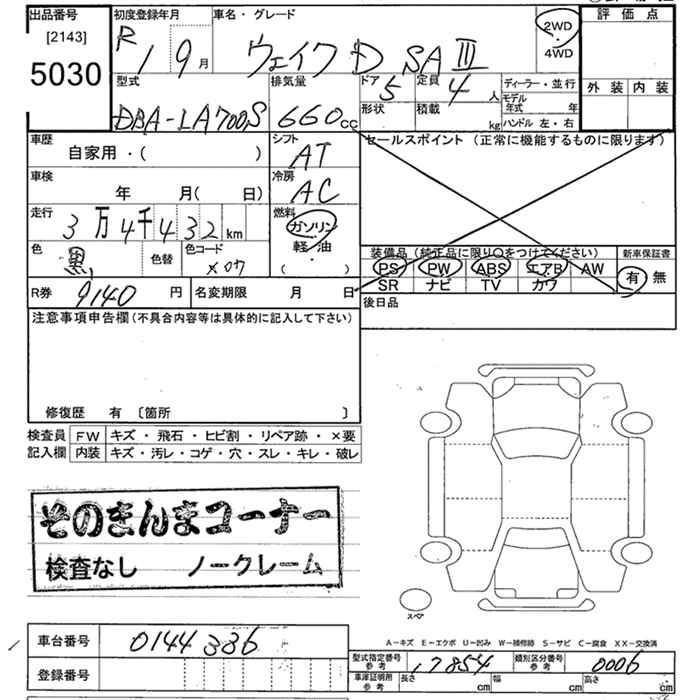 出品番号 初度登録年月 車名・グレード 2WD ・ 4WD 評価点
[2143] R 1 9月 ウェイク D SA Ⅲ
5030 型式 排気量 ドア 定員 ディーラー・並行 外装 内装
DBA-LA700S 660cc 5 4人 モデル年式 年
形状 積載 kg ハンドル 左・右
車歴 シフト セールスポイント (正常に機能するものに限ります)
自家用・( ) AT
車検 冷房
年 月( 日) AC
走行 燃料
3万4千432km ガソリン
色 色替 色コード 軽油 装備品 (純正品に限り○をつけてください) 新車保証書
黒 X07 ( ) PS PW ABS エアB AW 有 無
SR ナビ TV カワ
R券 9140円 名変期限 月 日 後日品
注意事項申告欄(不具合内容等は具体的に記入して下さい)
修復歴 有 〔箇所 〕
検査員 FW キズ・飛石・ヒビ割・リペア跡・×要
記入欄 内装 キズ・汚レ・コゲ・穴・スレ・キレ・破レ
そのまんまコーナー
検査なし ノークレーム
スペア
A-キズ E-エクボ U-凹み W-補修跡 S-サビ C-腐食 XX-交換済
車台番号 0144336
型式指定番号 参考 17854 類別区分番号 参考 0006
登録番号 車庫証明用 参考 長さ cm 幅 cm 高さ cm